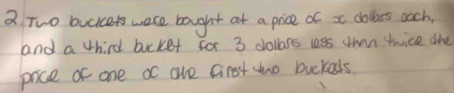 2. Two buckets were bought at a price of x dollars each,
and a third bucket for 3 dollars less then twice the
price of one of the first two buckets.